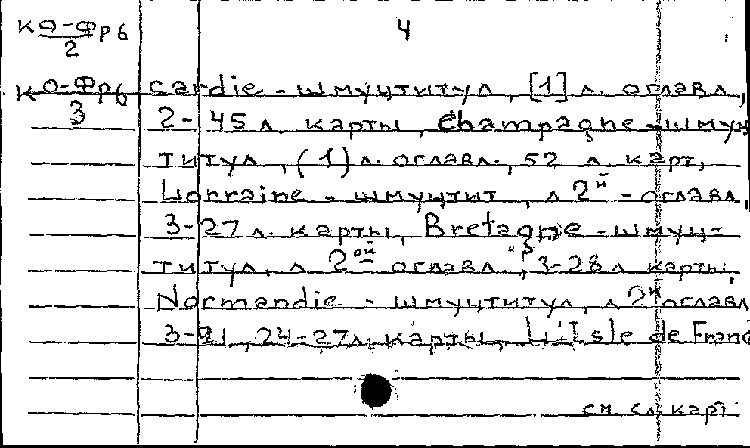 КО-Фр6
2
4
КО-Фр6
3
cardie - шмуцтитул, [1] л. оглавл,
2-45 л. карты, Champagne - шмуц
титул, (1) л. оглавл., 52 л. карт,
Lorraine - шмуцтит, л 2й - оглавл,
3-27 л. карты, Bretagne - шмуц-
титул, л 2ой оглавл, 3-28 л карты,
Normandie - шмуцтитул, л 2й оглавл
24-27л. карты, L'Isle de Franc
см. сл. карт.